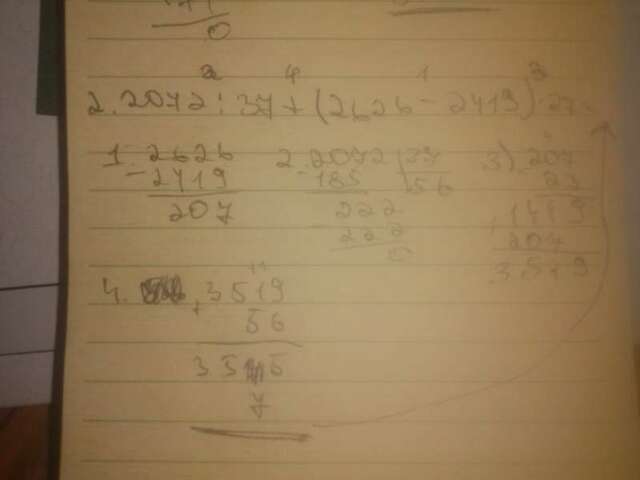 0
2 4 1 3
2. 2072 : 37 + (2626 - 2419) ·
1. 2626 2. 2072 | 37 3) 207
- 2419 - 185 56
207 222 1449
222 207
0 3519
4. 3519
+ 56
35 5
7